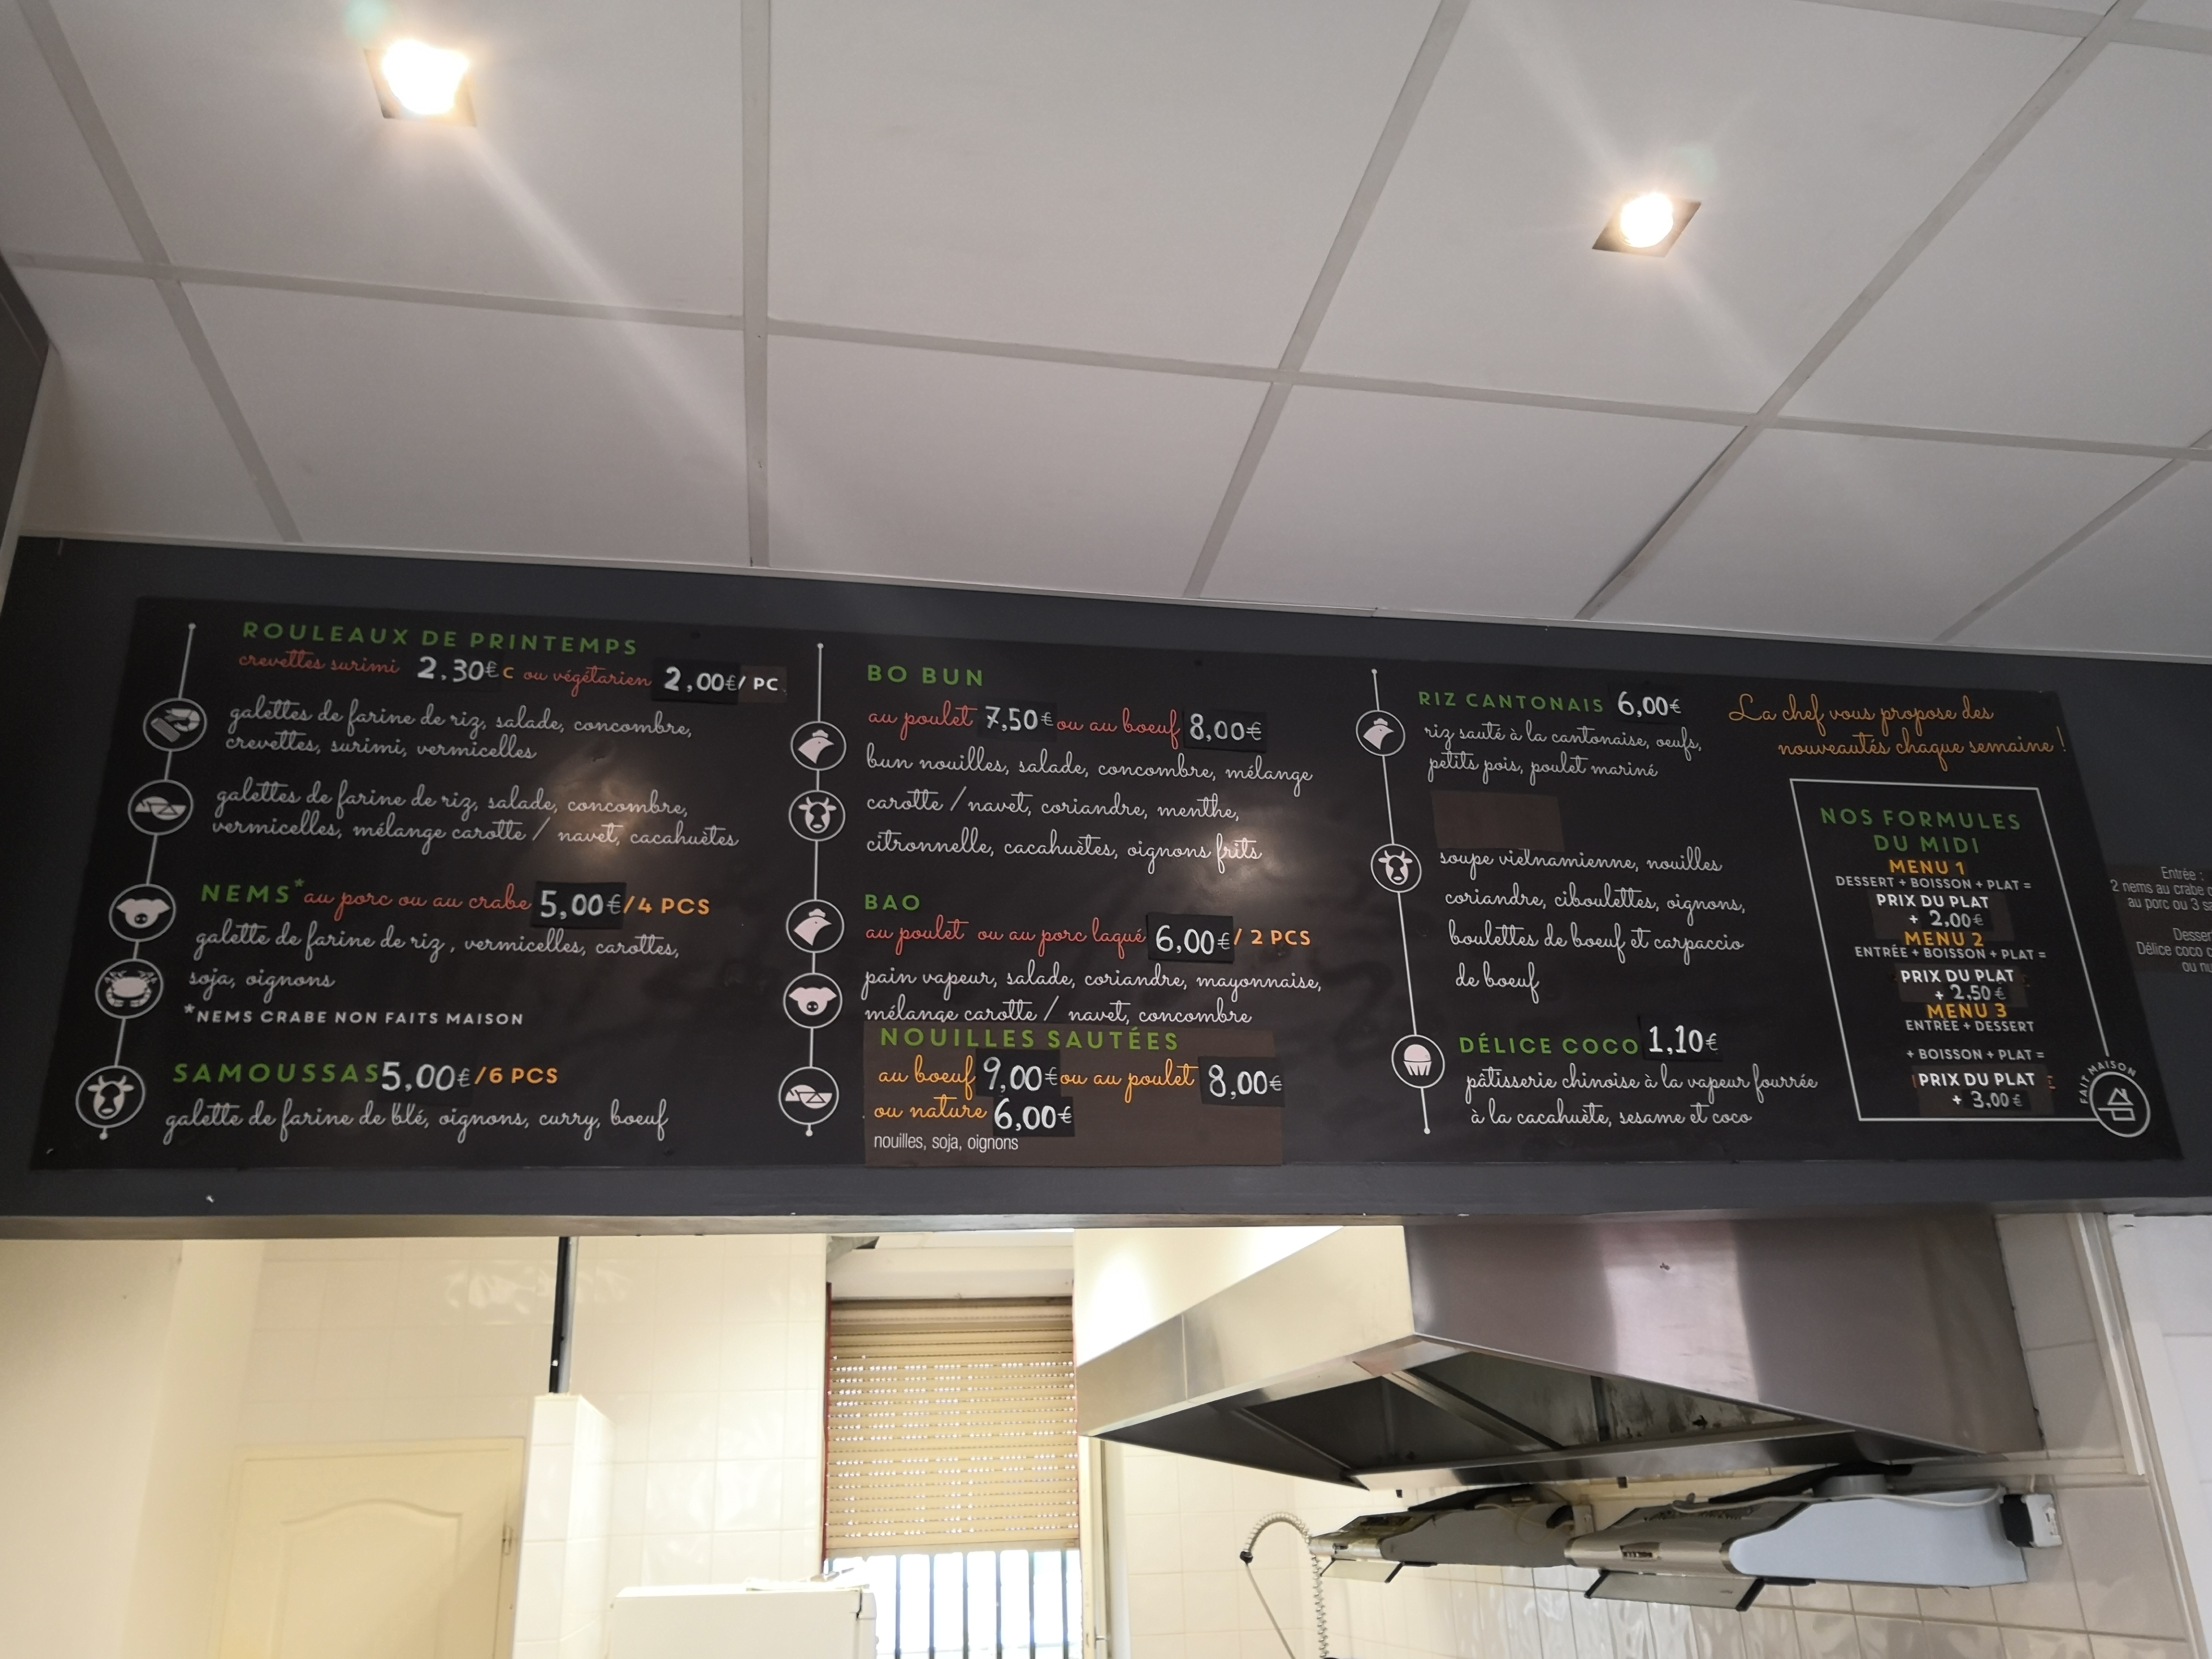 ROULEAUX DE PRINTEMPS
crevettes surimi 2,30€ C ou végétarien 2,00€/ PC
galettes de farine de riz, salade, concombre,
crevettes, surimi, vermicelles
galettes de farine de riz, salade, concombre,
vermicelles, mélange carotte / navet, cacahuètes
NEMS* au porc ou au crabe 5,00€/4 PCS
galette de farine de riz, vermicelles, carottes,
soja, oignons
*NEMS CRABE NON FAITS MAISON
SAMOUSSAS 5,00€/6 PCS
galette de farine de blé, oignons, curry, boeuf
BO BUN
au poulet 7,50€ ou au boeuf 8,00€
bun nouilles, salade, concombre, mélange
carotte / navet, coriandre, menthe,
citronnelle, cacahuètes, oignons frits
BAO
au poulet ou au porc laqué 6,00€/ 2 PCS
pain vapeur, salade, coriandre, mayonnaise,
mélange carotte / navet, concombre
NOUILLES SAUTÉES
au boeuf 9,00€ ou au poulet 8,00€
ou nature 6,00€
nouilles, soja, oignons
RIZ CANTONAIS 6,00€
riz sauté à la cantonaise, oeufs,
petits pois, poulet mariné
soupe vietnamienne, nouilles
coriandre, ciboulettes, oignons,
boulettes de boeuf et carpaccio
de boeuf
DÉLICE COCO 1,10€
pâtisserie chinoise à la vapeur fourrée
à la cacahuète, sesame et coco
La chef vous propose des
nouveautés chaque semaine !
NOS FORMULES
DU MIDI
MENU 1
DESSERT + BOISSON + PLAT =
PRIX DU PLAT
+ 2,00€
MENU 2
ENTRÉE + BOISSON + PLAT =
PRIX DU PLAT
+ 2,50€
MENU 3
ENTREE + DESSERT
+ BOISSON + PLAT =
PRIX DU PLAT
+ 3,00€
FAIT MAISON
Entrée :
2 nems au crabe
au porc ou 3
Délice coco
ou